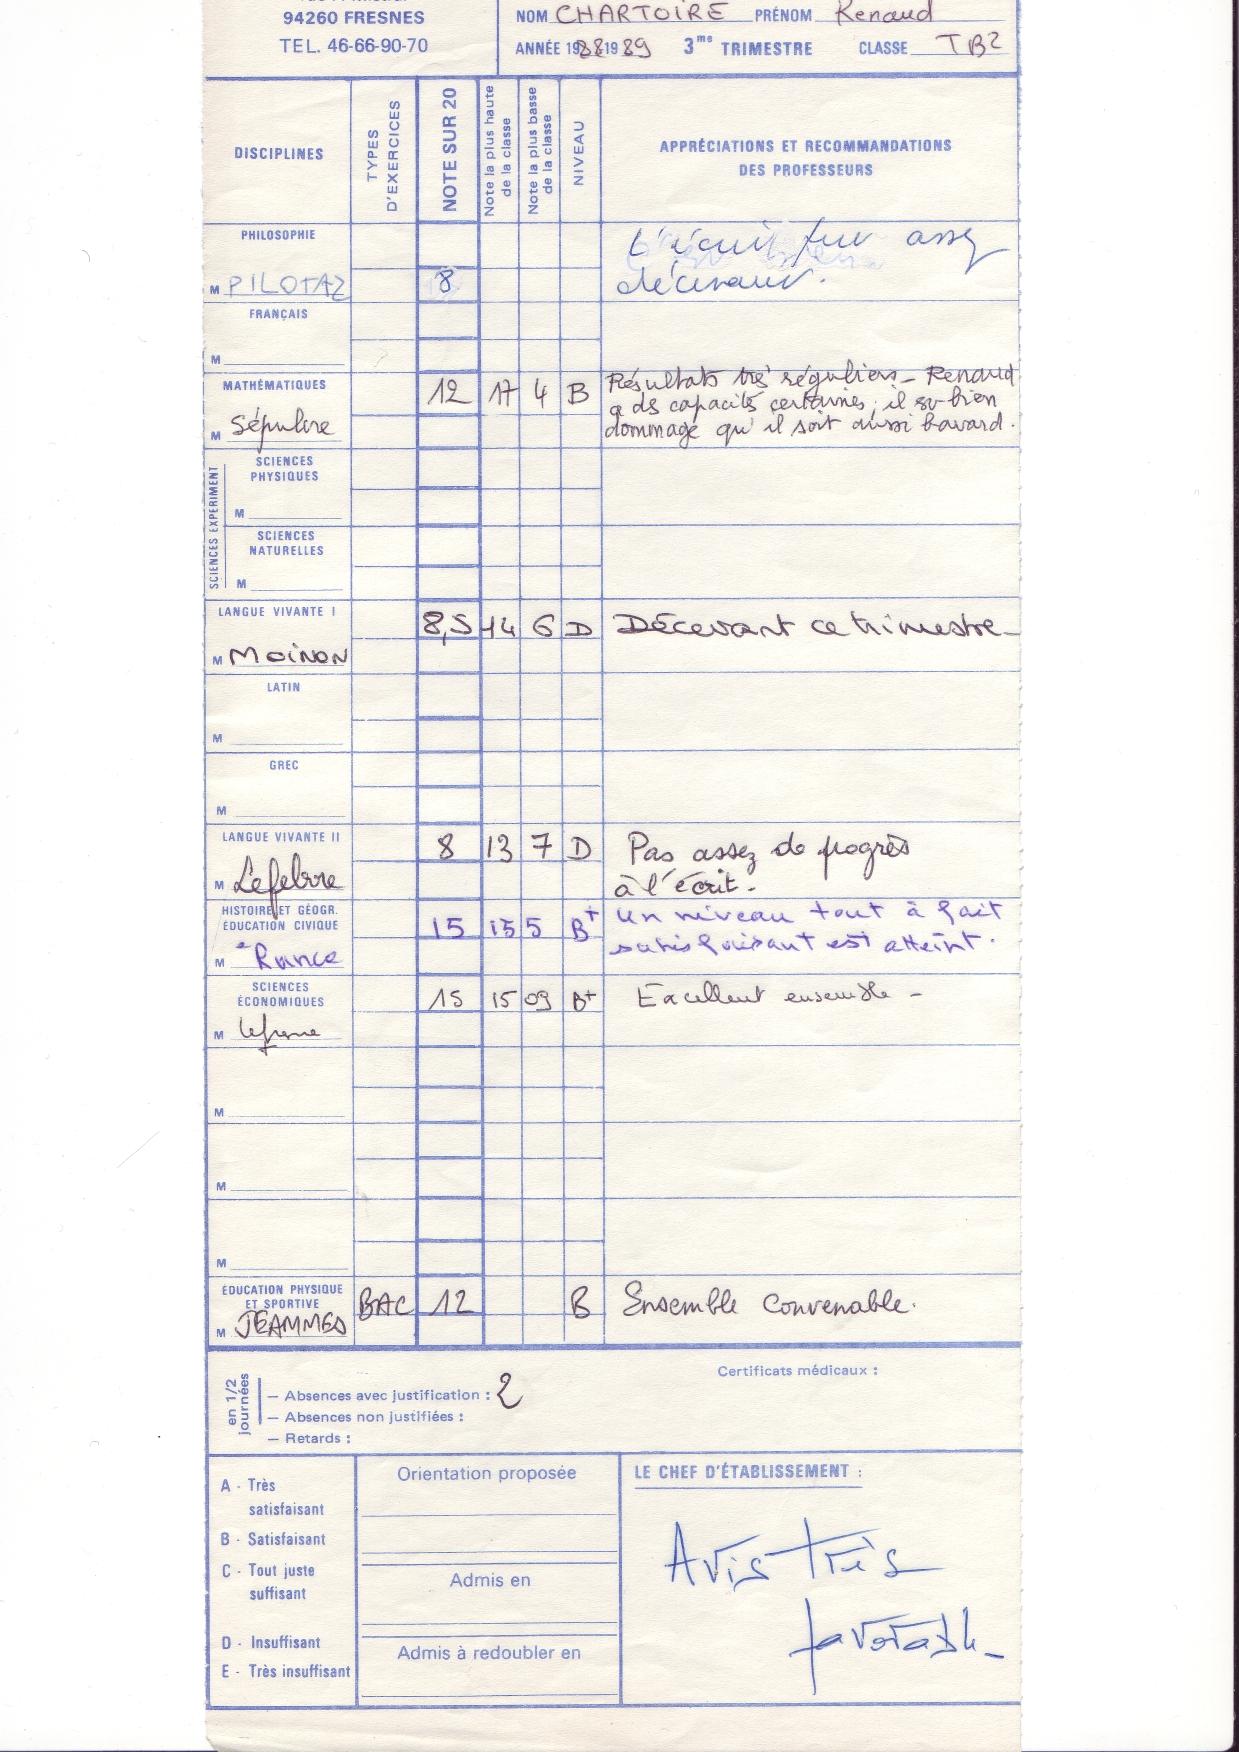 94260 FRESNES
TEL. 46-66-90-70
NOM CHARTOIRE PRÉNOM Renaud
ANNÉE 1988 1989 3me TRIMESTRE CLASSE TB2
DISCIPLINES
TYPES D'EXERCICES
NOTE SUR 20
Note la plus haute de la classe
Note la plus basse de la classe
NIVEAU
APPRÉCIATIONS ET RECOMMANDATIONS
DES PROFESSEURS
PHILOSOPHIE
M PILOTAZ
8
L'écrit fut assez
décevant.
FRANÇAIS
M
MATHÉMATIQUES
M Sépulcre
12 17 4 B
Résultats très réguliers - Renaud
a des capacités certaines, il est bien
dommage qu'il soit aussi bavard.
SCIENCES EXPERIMENT
SCIENCES
PHYSIQUES
M
SCIENCES
NATURELLES
M
LANGUE VIVANTE I
M MOINON
8,5 14 6 D Décevant ce trimestre
LATIN
M
GREC
M
LANGUE VIVANTE II
M Lefebvre
8 13 7 D Pas assez de progrès
à l'écrit.
HISTOIRE ET GÉOGR.
ÉDUCATION CIVIQUE
M Rance
15 15 5 B+ un niveau tout à fait
satisfaisant est atteint.
SCIENCES
ÉCONOMIQUES
M
15 15 09 B+ Excellent ensemble -
M
M
M
ÉDUCATION PHYSIQUE
ET SPORTIVE
M JEAMMES
BAC 12 B Ensemble convenable.
en 1/2 journées
— Absences avec justification : 2
— Absences non justifiées :
— Retards :
Certificats médicaux :
A - Très
satisfaisant
B - Satisfaisant
C - Tout juste
suffisant
D - Insuffisant
E - Très insuffisant
Orientation proposée
Admis en
Admis à redoubler en
LE CHEF D'ÉTABLISSEMENT :
Avis très
favorable